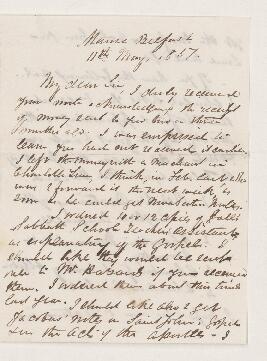 Manse Belfast
11th May, 1857.
My dear Sir, I duly received
your note acknowledging the receipt
of money sent to you two or three
months ago. I was surprised to
learn you had not received it earlier
I left the money with a merchant in
Charlottetown, I think, in Feb. last who
was to forward it the next week, as
soon as he could get
I ordered 10 or 12 copies of
Sabbath School Teachers Assistants
in explanation of the Gospels. I
should like they would be sent
also to Mr. if you received
them. I ordered them about this time
last year. I should like also to get
Jacobus' notes on Saint John's Gospel
& on the Acts of the Apostles - I